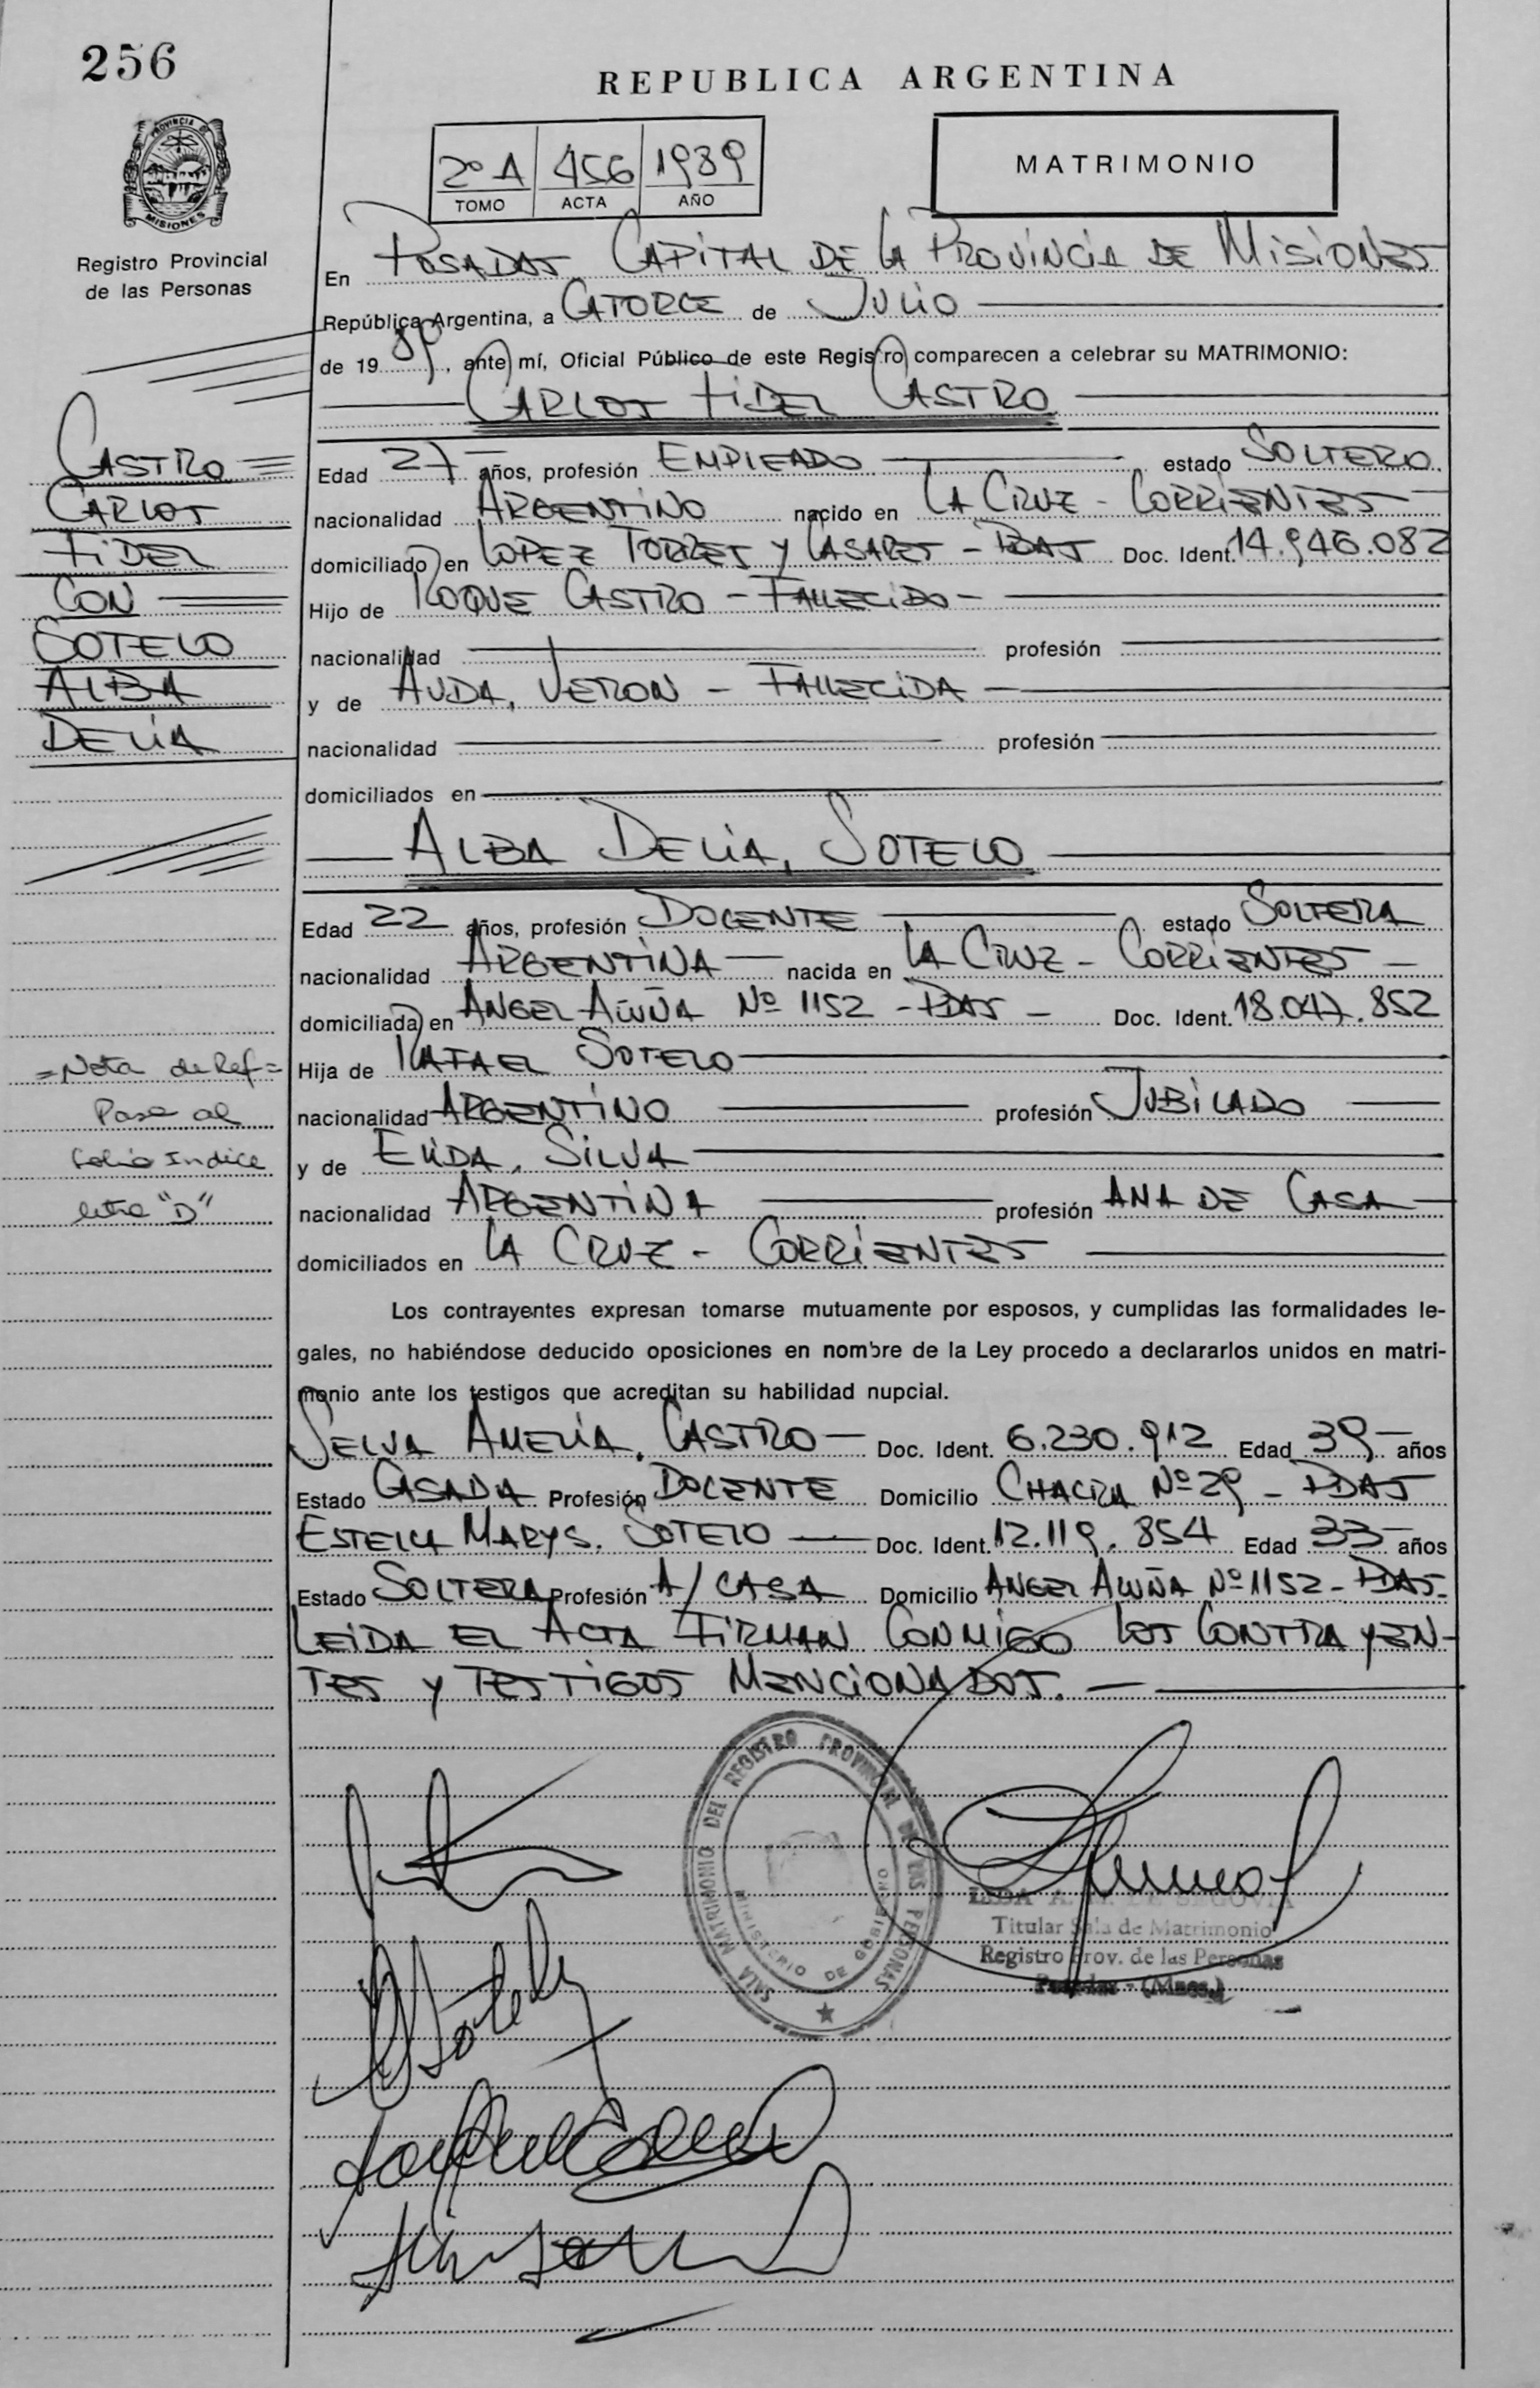 256
REPUBLICA ARGENTINA
2º A 456 1989
TOMO ACTA AÑO
MATRIMONIO
PROVINCIA DE
MISIONES
Registro Provincial
de las Personas
En POSADAS, CAPITAL DE LA PROVINCIA DE MISIONES
República Argentina, a CATORCE de JULIO
de 19 89, ante mí, Oficial Público de este Registro comparecen a celebrar su MATRIMONIO:
CARLOS FIDEL CASTRO
CASTRO
CARLOS
FIDEL
CON
SOTELO
ALBA
DELIA
Edad 27 años, profesión EMPLEADO estado SOLTERO
nacionalidad ARGENTINO nacido en LA CRUZ - CORRIENTES
domiciliado en LOPEZ TORRES Y CASARES - PDAS Doc. Ident. 14.946.082
Hijo de ROQUE CASTRO - FALLECIDO -
nacionalidad profesión
y de AUDA, VERON - FALLECIDA -
nacionalidad profesión
domiciliados en
ALBA DELIA, SOTELO
Edad 22 años, profesión DOCENTE estado SOLTERA
nacionalidad ARGENTINA nacida en LA CRUZ - CORRIENTES -
domiciliada en ANGEL ACUÑA Nº 1152 - PDAS - Doc. Ident. 18.047.852
Hija de RAFAEL SOTELO
nacionalidad ARGENTINO profesión JUBILADO
y de ELIDA, SILVA
nacionalidad ARGENTINA profesión AMA DE CASA
domiciliados en LA CRUZ - CORRIENTES
= Nota de Ref =
Pasa al
folio Indice
letra "D"
Los contrayentes expresan tomarse mutuamente por esposos, y cumplidas las formalidades le-
gales, no habiéndose deducido oposiciones en nombre de la Ley procedo a declararlos unidos en matri-
monio ante los testigos que acreditan su habilidad nupcial.
SELVA AMELIA, CASTRO - Doc. Ident. 6.230.912 Edad 39 años
Estado CASADA Profesión DOCENTE Domicilio CHACRA Nº 29 - PDAS
ESTELA MARYS, SOTELO Doc. Ident. 12.119.854 Edad 33 años
Estado SOLTERA Profesión A/CASA Domicilio ANGEL ACUÑA Nº 1152 - PDAS-
LEIDA EL ACTA FIRMAN CONMIGO LOS CONTRAYEN-
TES Y TESTIGOS MENCIONADOS. -
SALA MATRIMONIO DEL REGISTRO PROVINCIAL DE LAS PERSONAS
MINISTERIO DE GOBIERNO
DE SEGOVIA
Titular Sala de Matrimonio
Registro Prov. de las Personas
Posadas - (Mnes.)